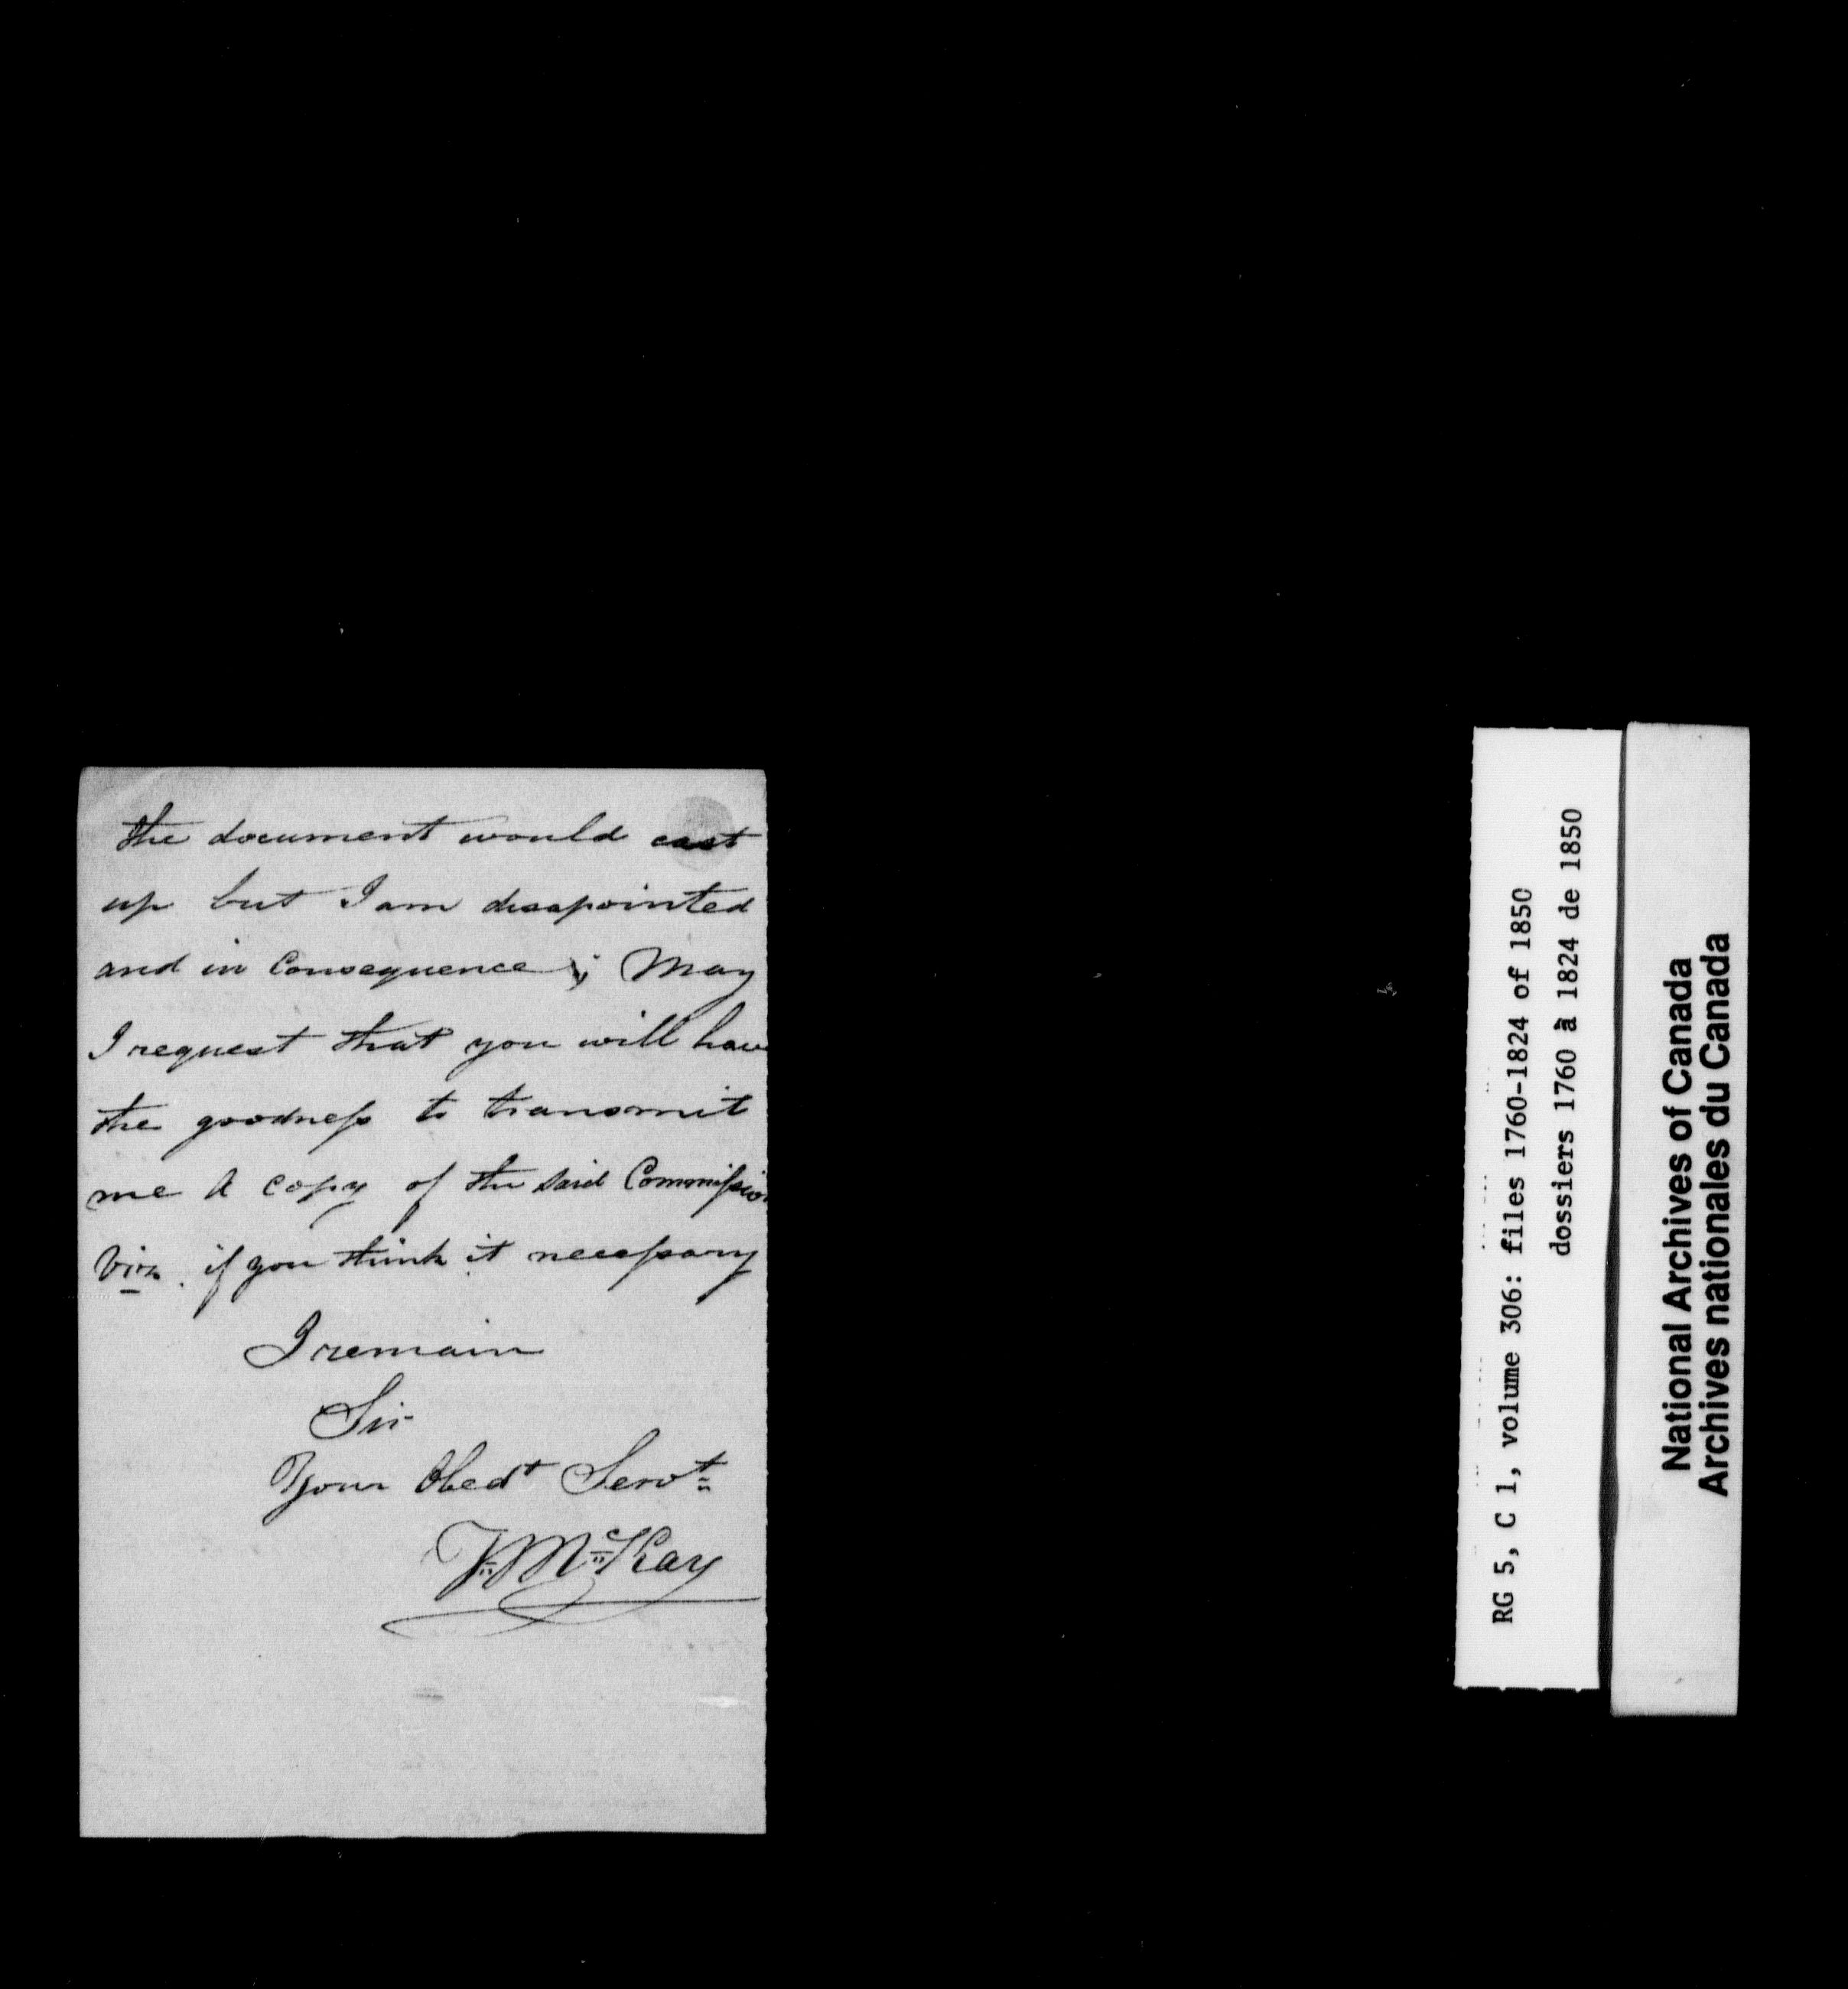 the document would cast
up but I am disapointed
and in Consequence ; May
I request that you will have
the goodness to transmit
me A copy of the said Commission
Viz. if you think it necessary
I remain
Sir
Your Obedt Servt
McKay
RG 5, C 1, volume 306: files 1760-1824 of 1850
dossiers 1760 à 1824 de 1850
National Archives of Canada
Archives nationales du Canada